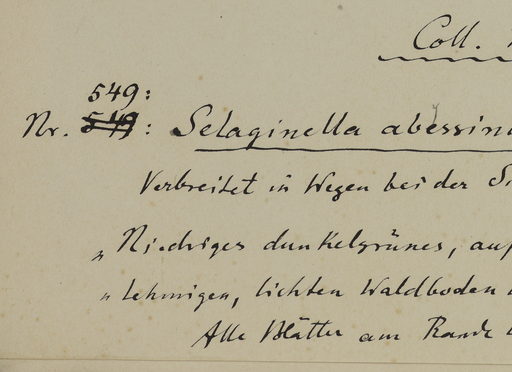 Coll.
549:
Nr. 549: Selaginella abessin
Verbreitet in Wegen bei der
„ Niedriges dunkelgrünes, auf
„ lehmigen, lichten Waldboden
Alle Blätter am Rande